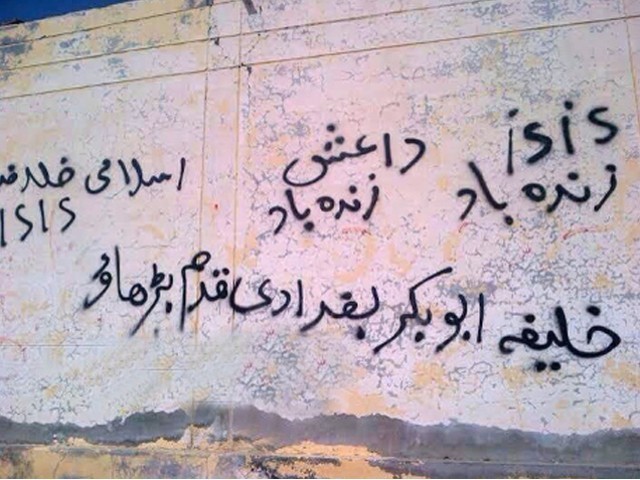 isis
زنده باد
داعش
زنده باد
اسلامی
ISIS
خلیفہ ابوبکر بغدادی قدم بڑھاؤ